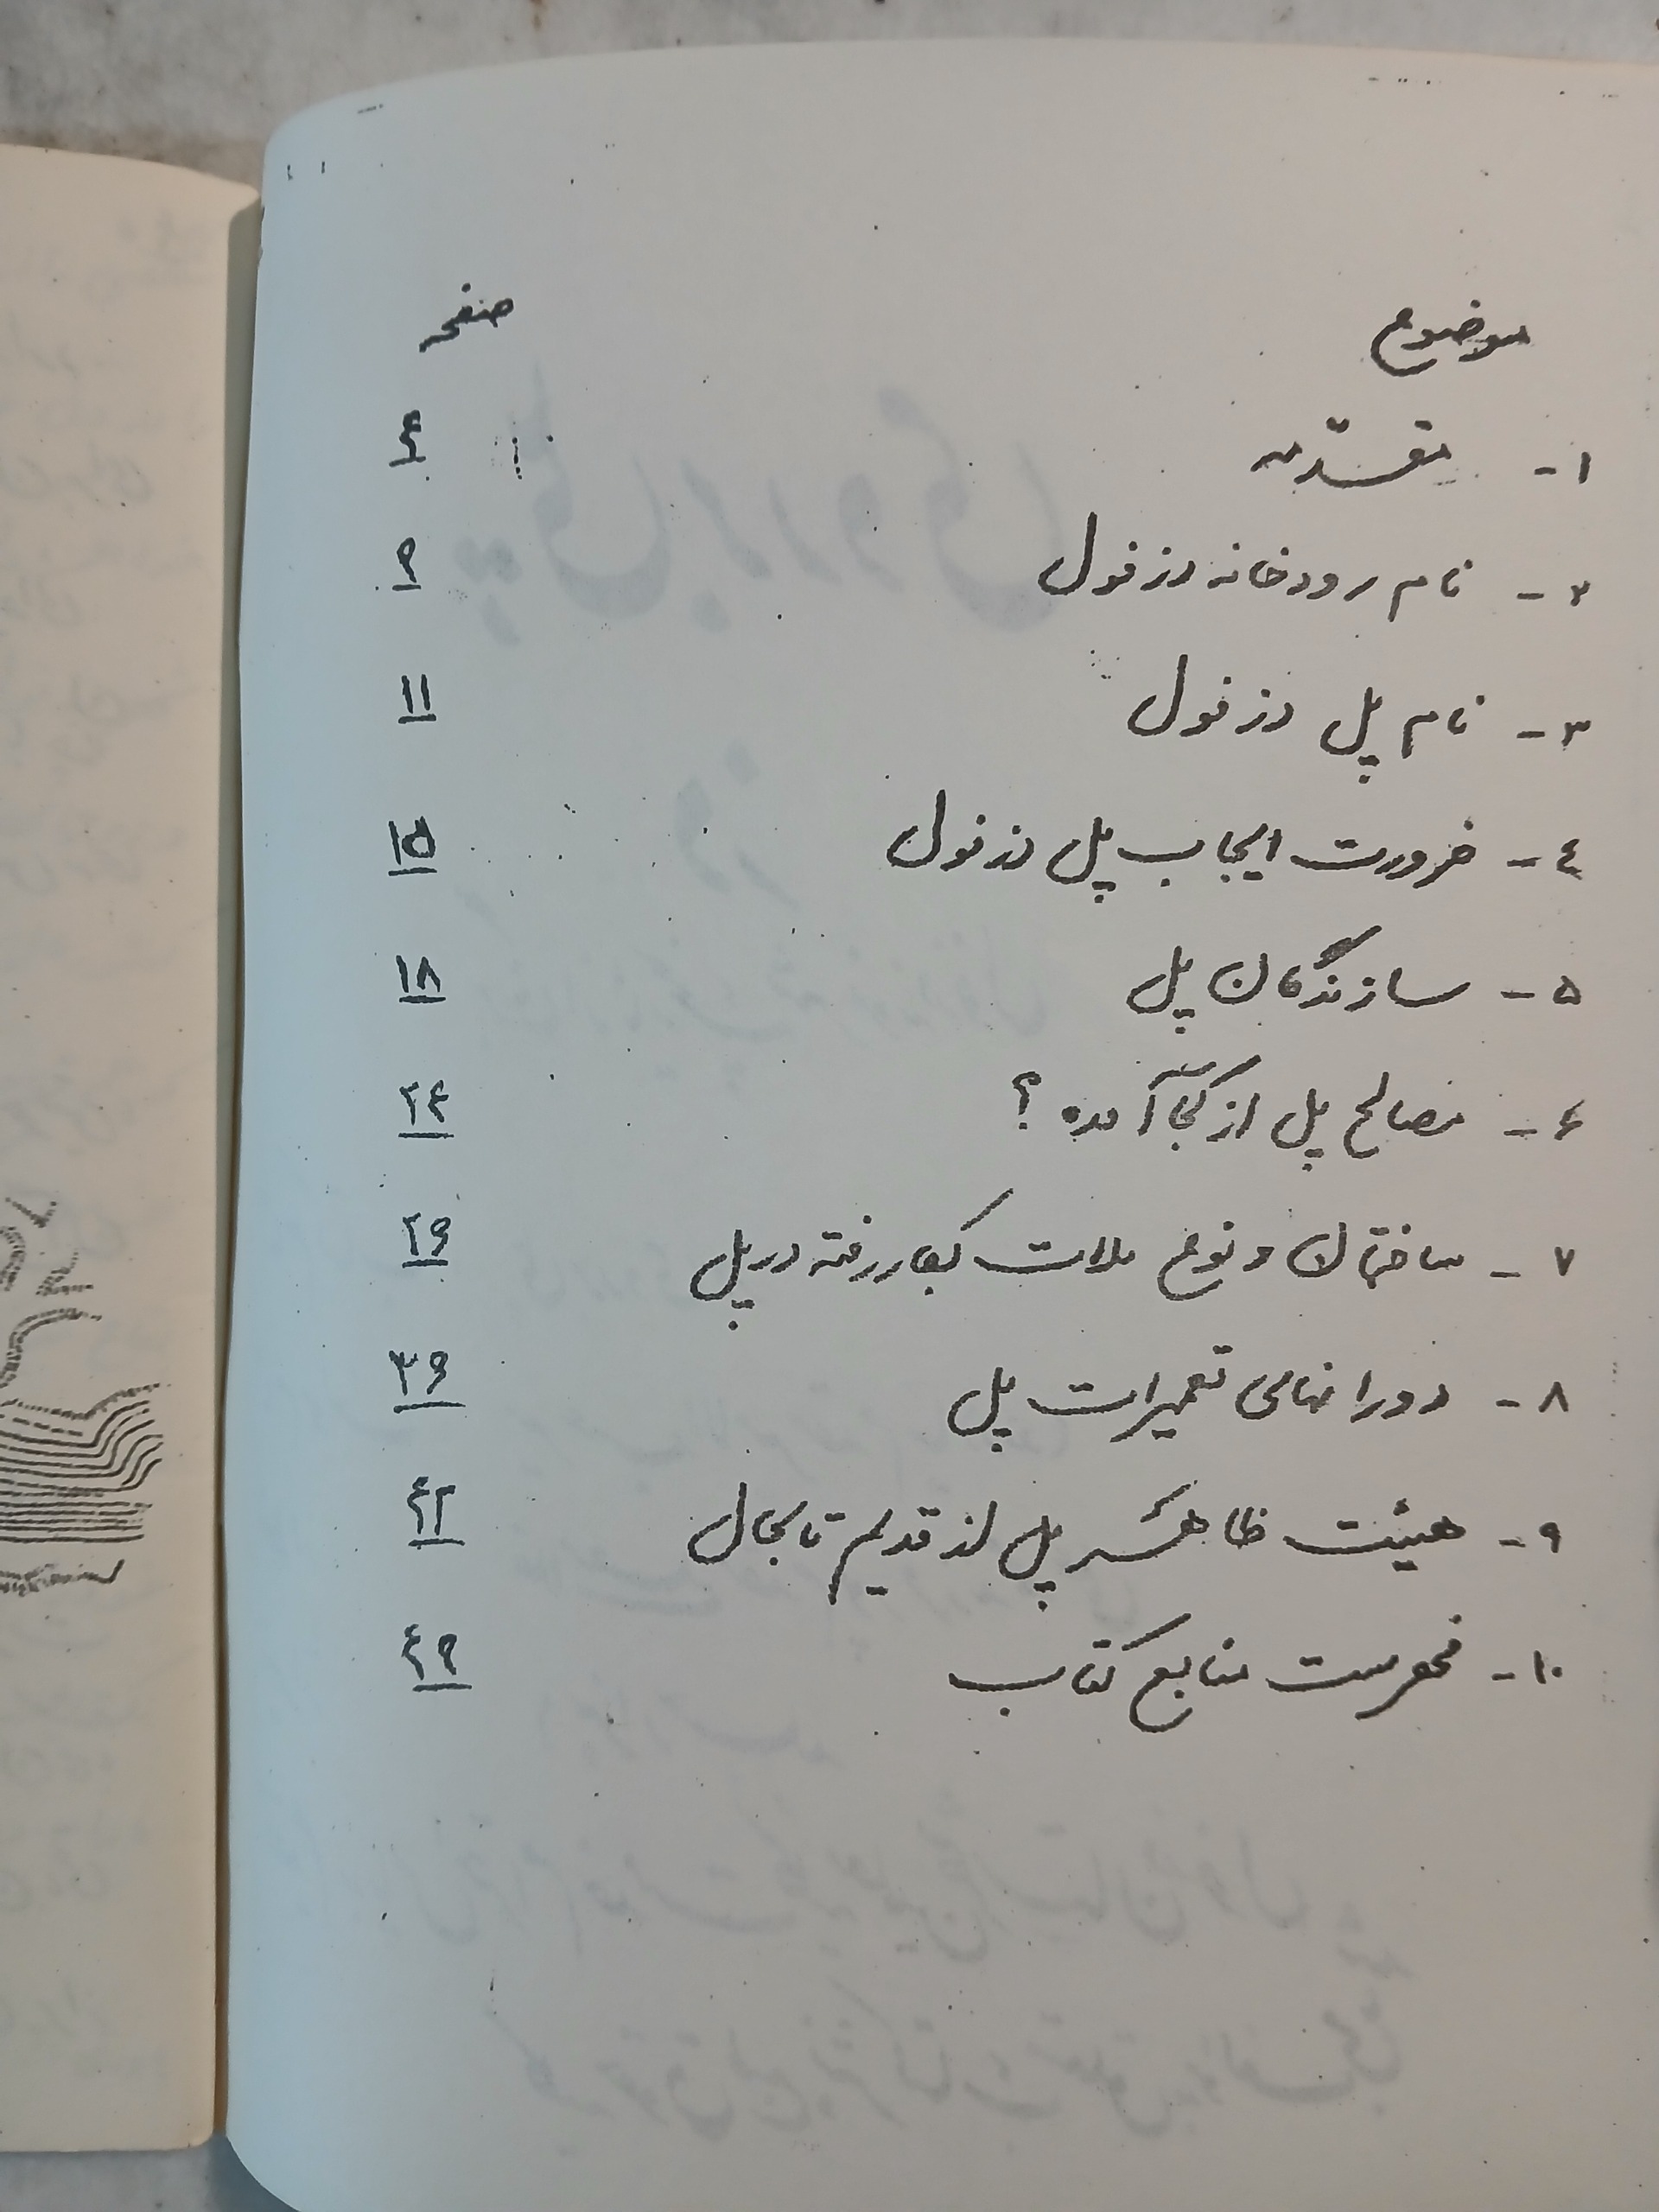 موضوع صفحه
۱- مقدّمه ۴
۲- نام رودخانه دزفول ۹
۳- نام پل دزفول ۱۱
٤- ضرورت ایجاب پل دزفول ۱۵
۵- سازندگان پل ۱۸
۶- مصالح پل از کجا آمده ؟ ۲۴
۷- ساختمان و نوع ملات بکار رفته در پل ۲۹
۸- دورانهای تعمیرات پل ۳۹
۹- هیئت ظاهر پل از قدیم تا بحال ٤۲
۱۰- فهرست منابع کتاب ٤۹